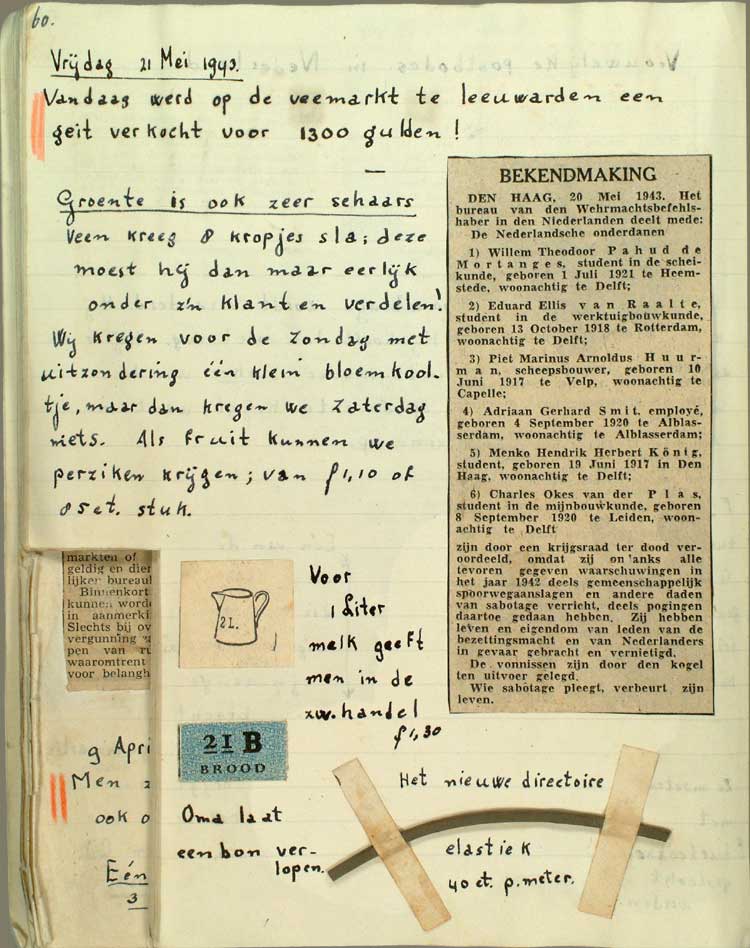 60.
Vrijdag 21 Mei 1943.
Vandaag werd op de veemarkt te leeuwarden een
geit verkocht voor 1300 gulden!
Groente is ook zeer schaars
Veen kreeg 8 kropjes sla; deze
moest hij dan maar eerlijk
onder z'n klanten verdelen!
Wij kregen voor de Zondag met
uitzondering één klein bloemkool-
tje, maar dan kregen we Zaterdag
niets. Als fruit kunnen we
perziken krijgen; van f 1,10 of
85ct. stuk.
BEKENDMAKING
DEN HAAG, 20 Mei 1943. Het
bureau van den Wehrmachtsbefehls-
haber in den Niederlanden deelt mede:
De Nederlandsche onderdanen
1) Willem Theodoor Pahud de
Mortanges, student in de schei-
kunde, geboren 1 Juli 1921 te Heem-
stede, woonachtig te Delft;
2) Eduard Ellis van Raalte,
student in de werktuigbouwkunde,
geboren 13 October 1918 te Rotterdam,
woonachtig te Delft;
3) Piet Marinus Arnoldus Huur-
man, scheepsbouwer, geboren 10
Juni 1917 te Velp, woonachtig te
Capelle;
4) Adriaan Gerhard Smit, employé,
geboren 4 September 1920 te Alblas-
serdam, woonachtig te Alblasserdam;
5) Menko Hendrik Herbert König,
student, geboren 19 Juni 1917 in Den
Haag, woonachtig te Delft;
6) Charles Okes van der Plas,
student in de mijnbouwkunde, geboren
8 September 1920 te Leiden, woon-
achtig te Delft
zijn door een krijgsraad ter dood ver-
oordeeld, omdat zij on anks alle
tevoren gegeven waarschuwingen in
het jaar 1942 deels gemeenschappelijk
spoorwegaanslagen en andere daden
van sabotage verricht, deels pogingen
daartoe gedaan hebben. Zij hebben
leven en eigendom van leden van de
bezettingsmacht en van Nederlanders
in gevaar gebracht en vernietigd.
De vonnissen zijn door den kogel
ten uitvoer gelegd.
Wie sabotage pleegt, verbeurt zijn
leven.
markten of
geldig en dier
lijker bureaul
Binnenkort
kunnen worde
in aanmerki
Slechts bij ov
vergunning
pen van ru
waaromtrent
voor belangh
2L.
Voor
1 Liter
melk geeft
men in de
zw. handel
f 1,30
21 B
BROOD
Oma laat
een bon ver-
lopen.
Het nieuwe directoire
elastiek
40 ct. p. meter.
9 Apri
Men z
ook o
Eén
3